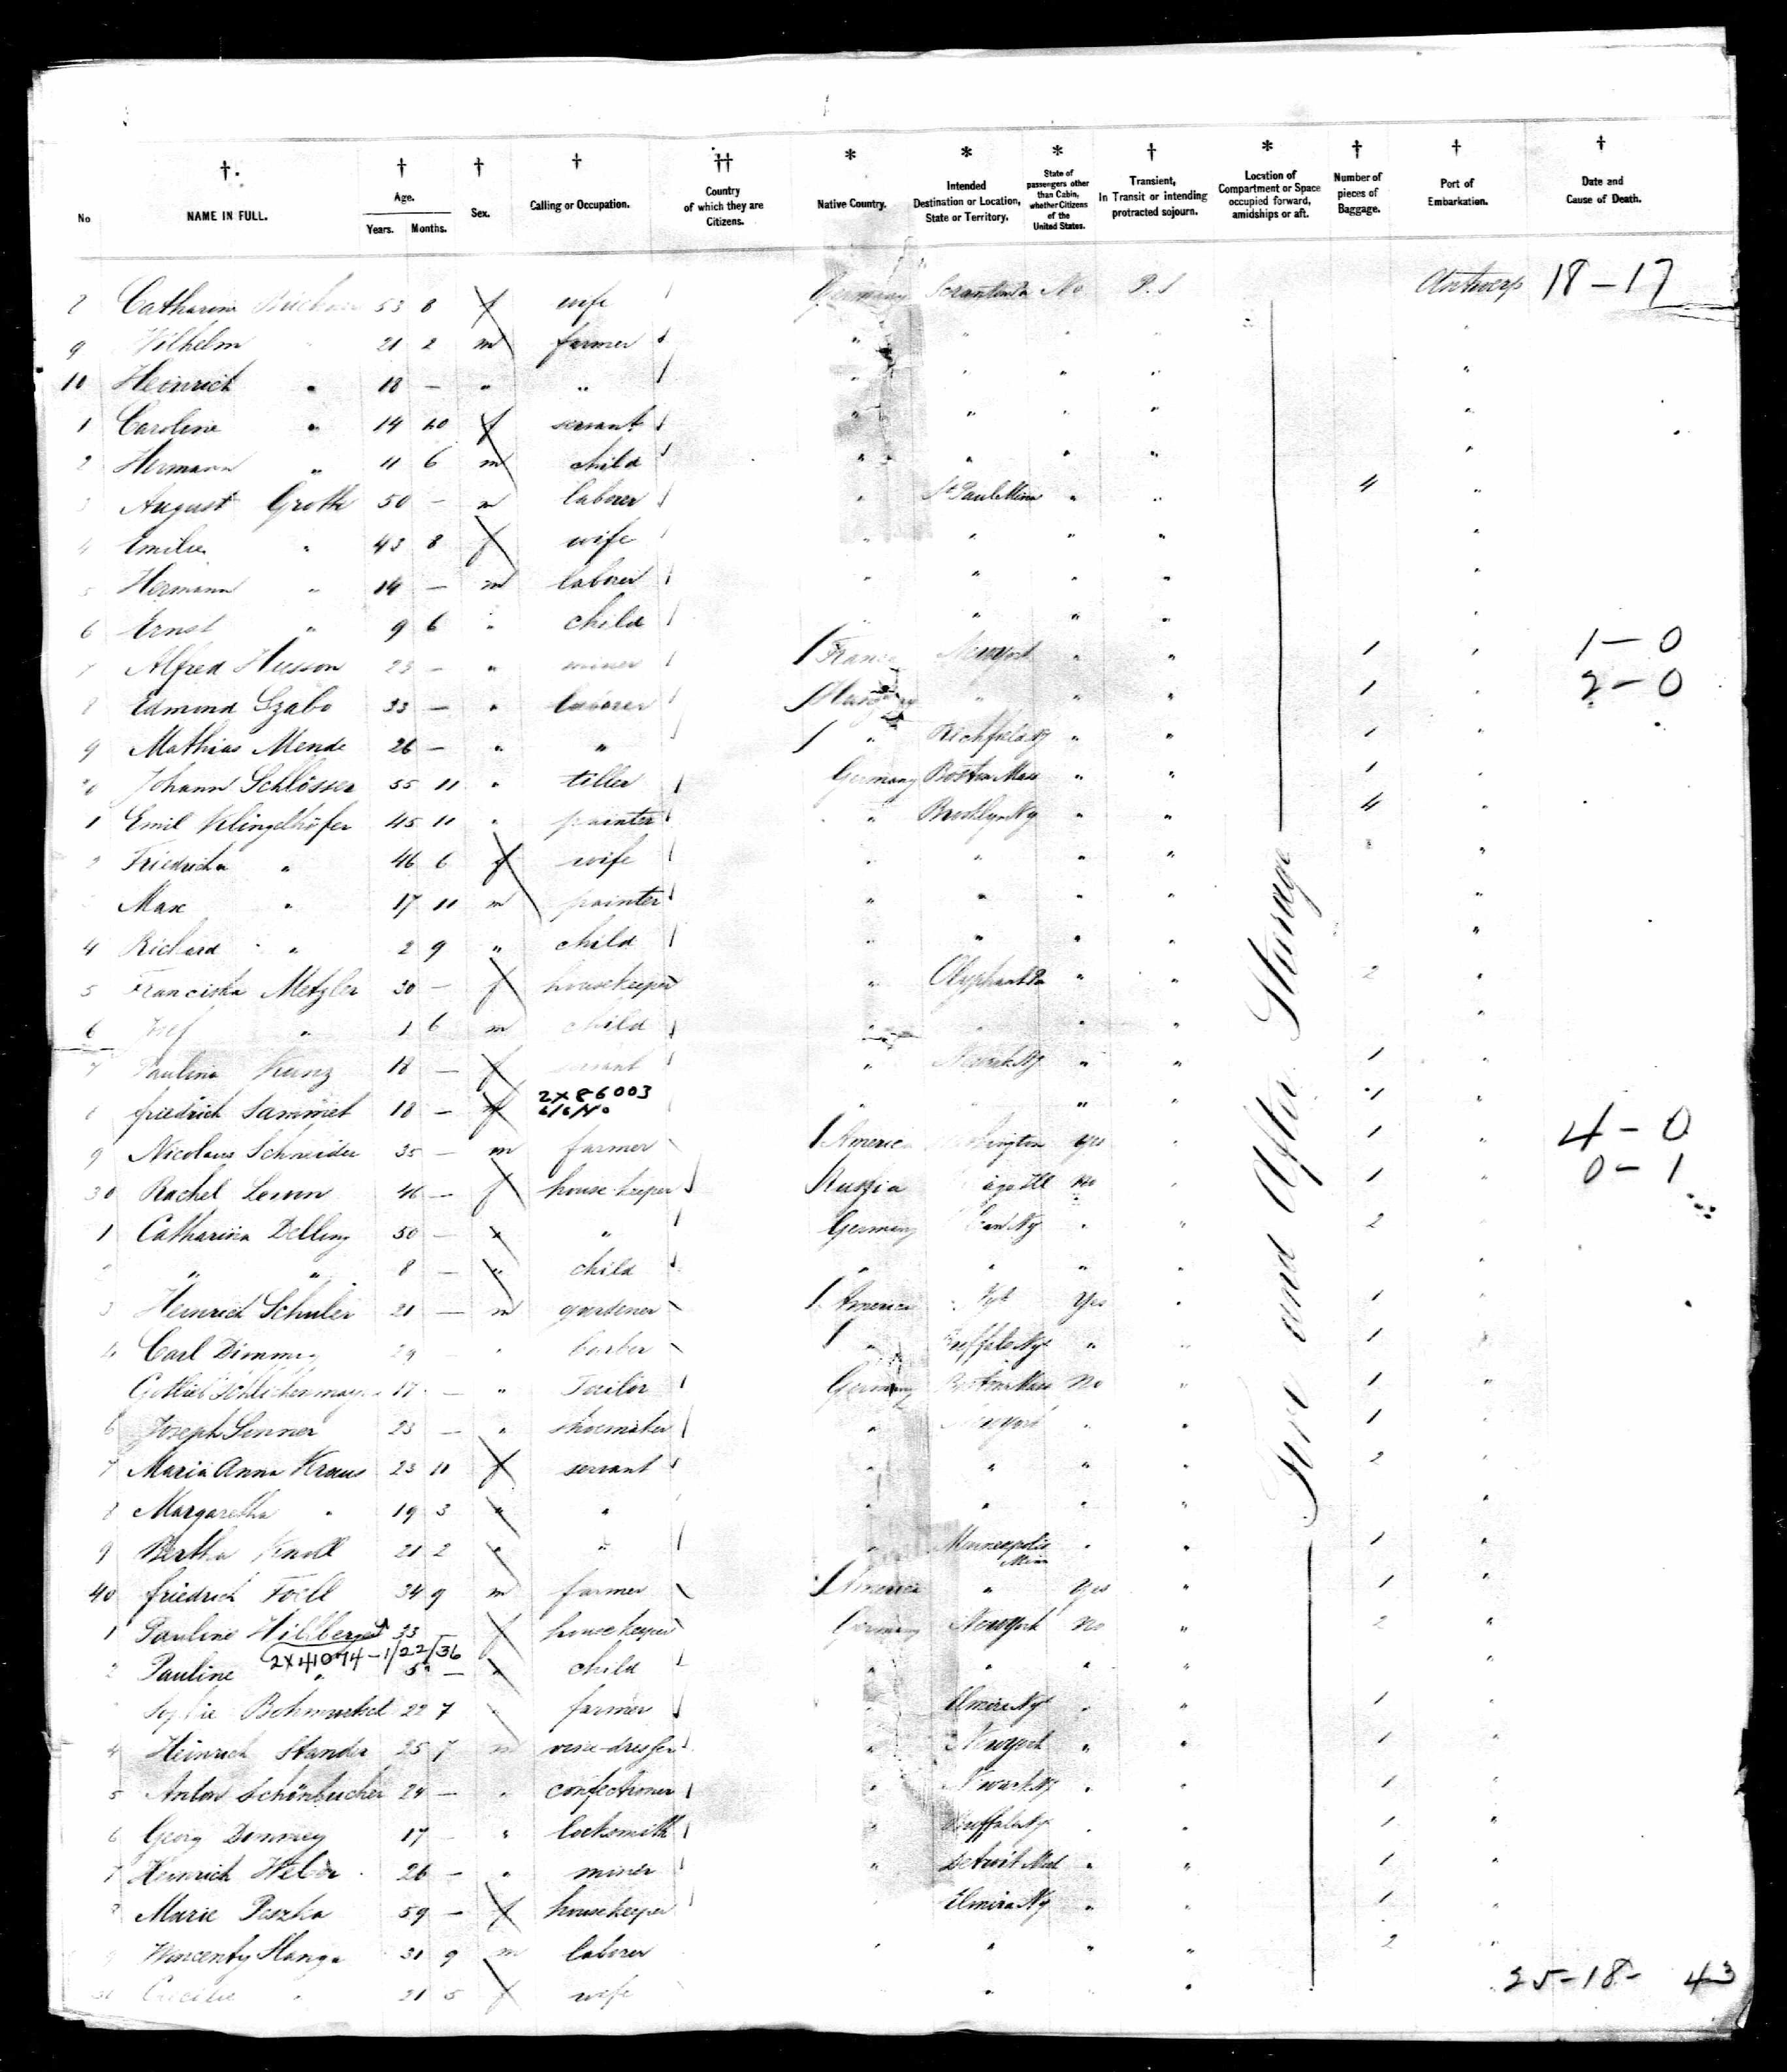 No NAME IN FULL. Age. Years. Months. Sex. Calling or Occupation. Country of which they are Citizens. Native Country. Intended Destination or Location, State or Territory. State of passengers other than Cabin, whether Citizens of the United States. Transient, In Transit or intending protracted sojourn. Location of Compartment or Space occupied forward, amidships or aft. Number of pieces of Baggage. Port of Embarkation. Date and Cause of Death.
8 Catharina 53 8 f wife Germany Scranton Pa No P.S Antwerp 18-17
9 Wilhelm " 21 2 m farmer " " " " "
10 Heinrich " 18 — " " " " " " "
1 Caroline " 14 10 f servant " " " " "
2 Hermann " 11 6 m child " " " " "
3 August Groth 50 — m laborer " St Paul Minn " " 4 "
4 Emilie " 43 8 f wife " " " " "
5 Hermann " 14 — m laborer " " " " "
6 Ernst " 9 6 " child " " " " "
7 Alfred Husson 23 — " miner France Newyork " " 1 " 1-0
8 Edmond Szabo 33 — " laborer Hungary " " " 1 " 2-0
9 Mathias Mende 26 — " " " Richfield " " 1 "
20 Johann Schlösser 55 11 " tiller Germany Boston Mass " " 1 "
1 Emil Klingelhöfer 45 11 " painter " Brooklyn Ny " " 4 "
2 Friedricka " 46 6 f wife " " " " "
Max " 17 11 m painter " " " " "
4 Richard " 2 9 " child " " " " "
5 Franciska Metzler 30 — f housekeeper " Olyphant Pa " " 2 "
6 Josef " 1 6 m child " " " " "
7 Paulina Kunz 18 — f servant " Newark NJ " " 1 "
8 friedrich Sammet 18 — 2X86003 " " " " 1 "
9 Nicolaus Schneider 35 — m farmer America Yes " 1 " 4-0
30 Rachel 46 — f house keeper Russia No " 1 " 0-1
1 Catharina Delling 50 — " " Germany " " 2 "
2 " " 8 — " child " " " " "
3 Heinrich Schuler 21 — m gardener America Yes " 1 "
4 Carl 29 — " barber " Buffalo Ny " " 1 "
Gottlieb 17 — " Tailor Germany Boston Mass No " 1 "
6 Joseph Sinner 23 — " shoemaker " Newyork " " 1 "
7 Maria Anna Kraus 23 11 f servant " " " " 2 "
8 Margaretha " 19 3 " " " " " " "
9 Bertha Knoll 21 2 " " " Minneapolis Minn " " 1 "
40 friedrich Foell 34 9 m farmer America " Yes " 1 "
1 Pauline 33 — f housekeeper Germany Newyork No " 2 "
2X41074-1/22/36
2 Pauline " 5 — " child " " " " "
Sophie 22 7 " farmer " Elmira Ny " " 1 "
4 Heinrich Stander 25 7 m vine-dresser " Newyork " " 1 "
5 Anton Schönbucher 24 — " confectioner " Newark NJ " " 1 "
6 Georg 17 — " locksmith " Buffalo Ny " " 1 "
7 Heinrich Weber 26 — " miner " Detroit " " 1 "
8 Marie Peszka 59 — f housekeeper Elmira Ny " " 1 "
9 Wincenty 31 9 m laborer " " " " 2 "
Cäcilie " 21 5 f wife " "
Fore and After Steerage
25-18- 43